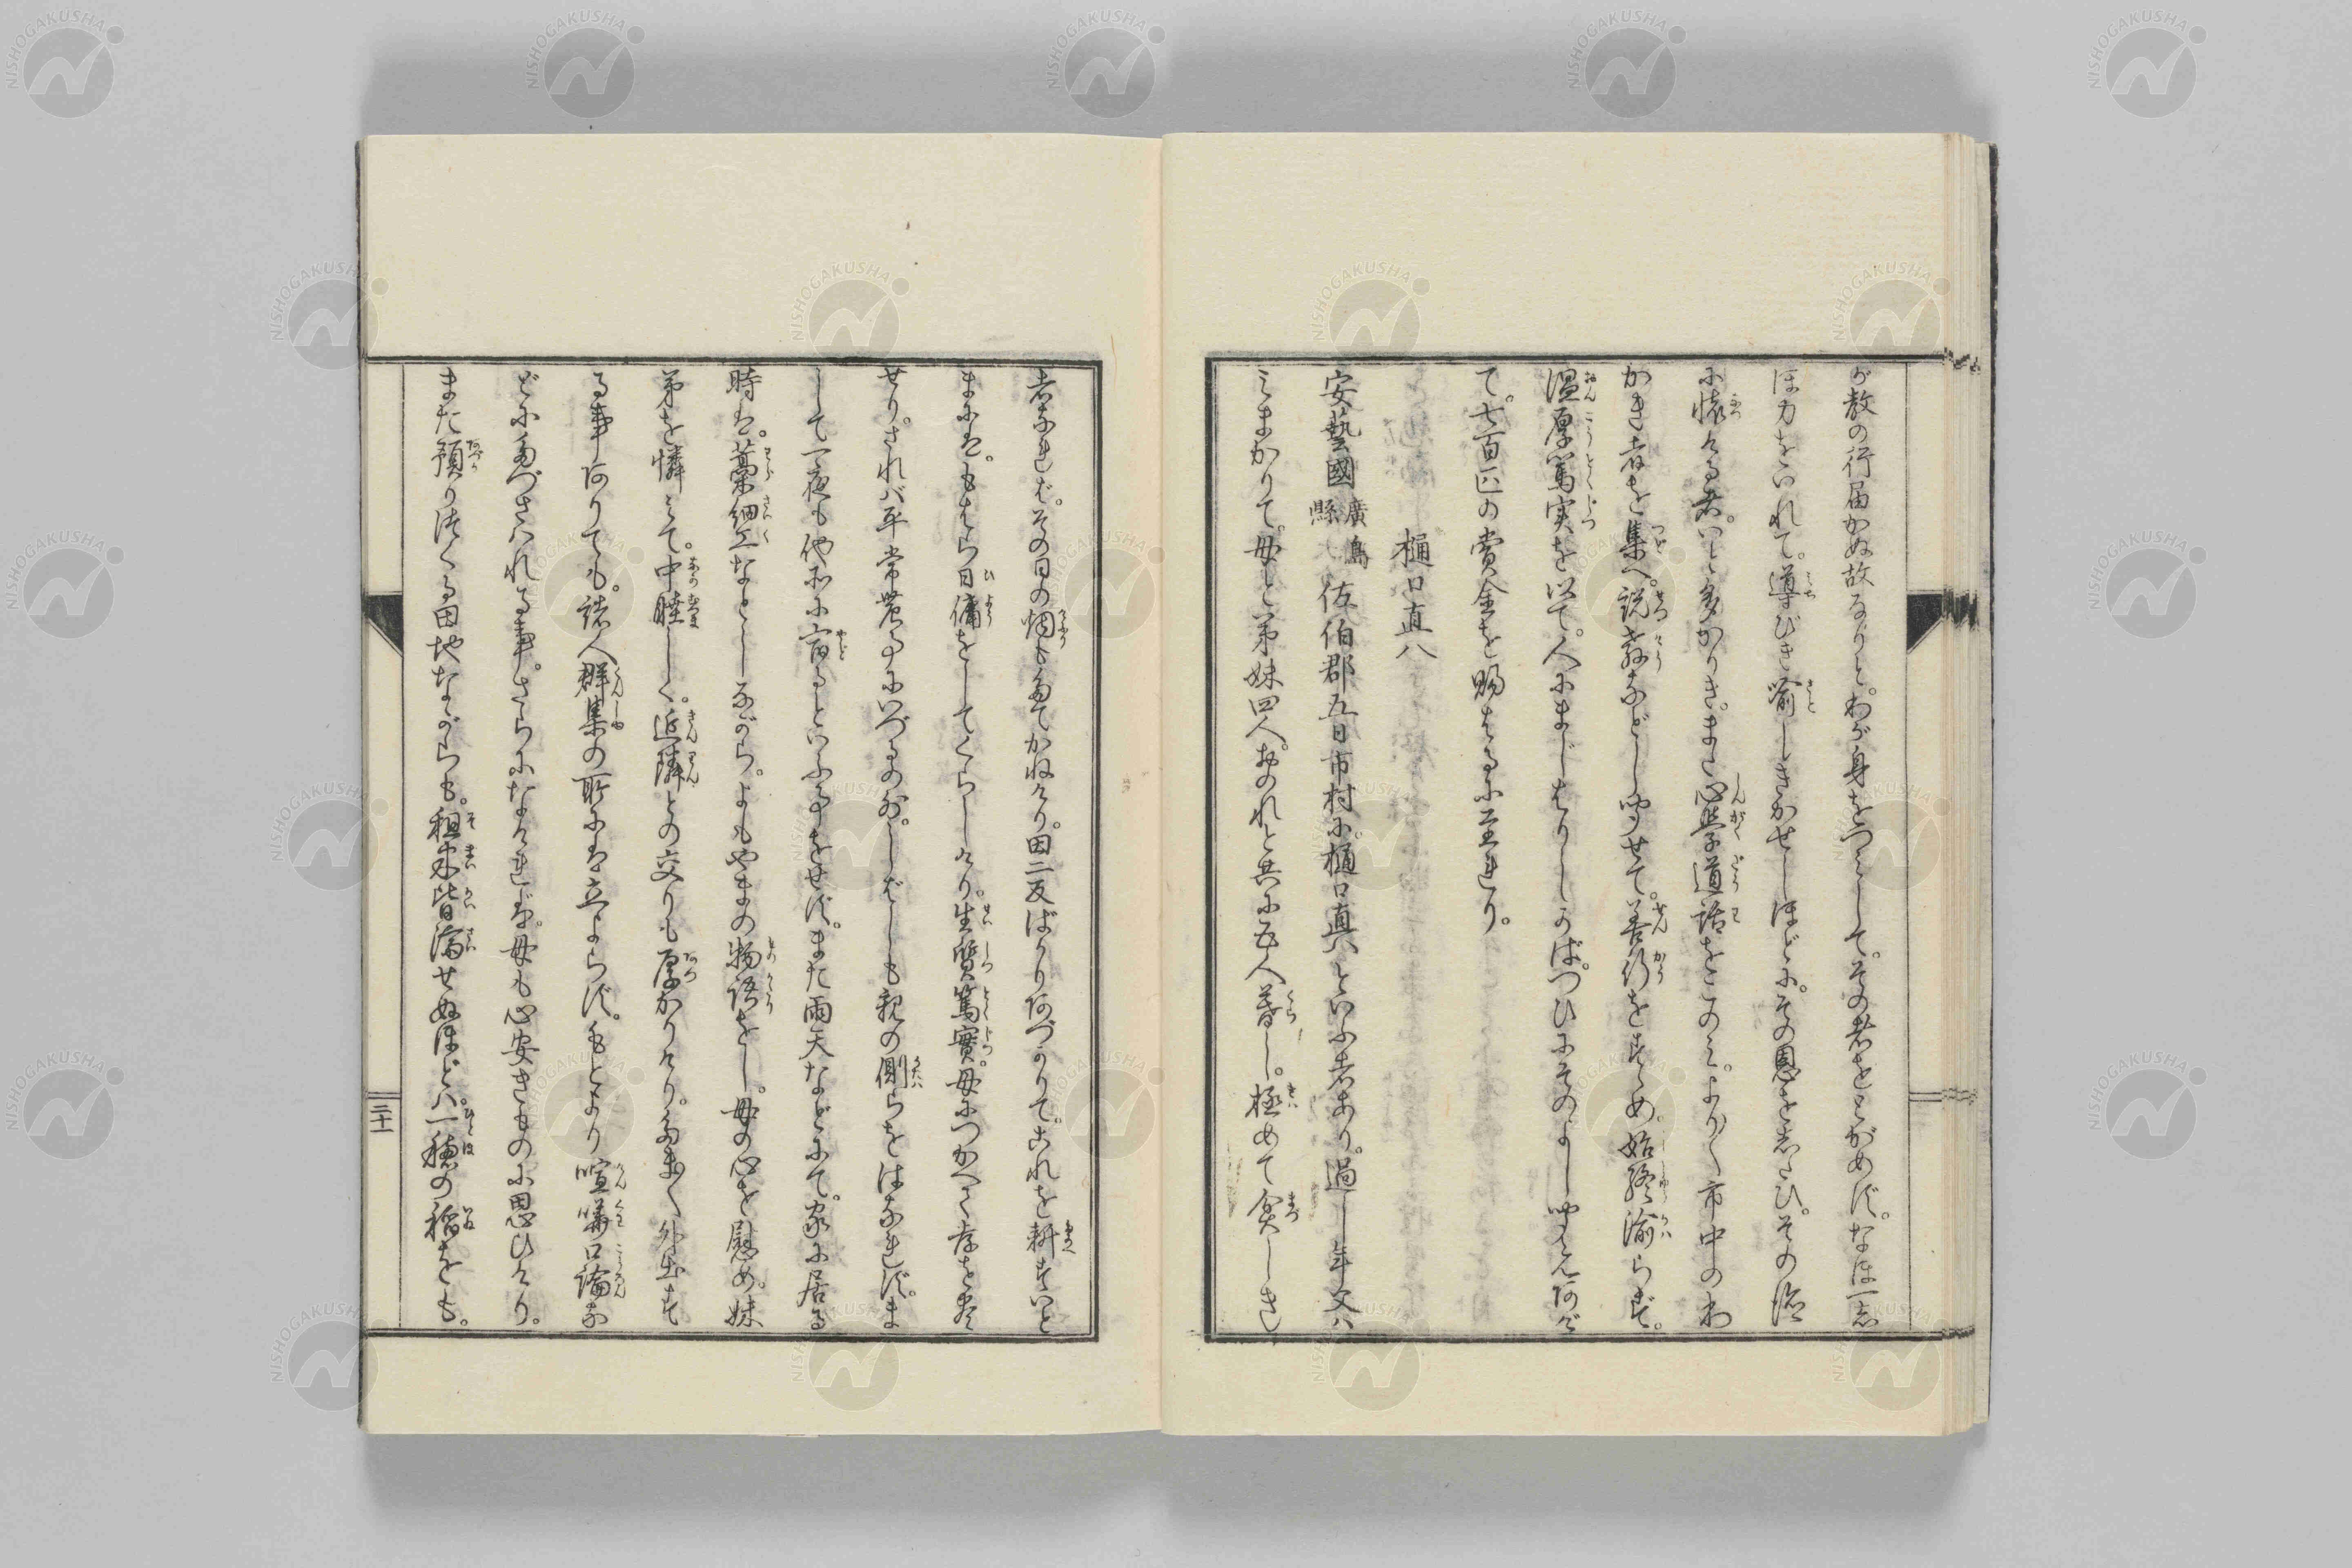 が教の行届かぬ故なりと。わが身をつミして。その者をとがめず。なほ一志
ほ力をいれて。導びき喩しきかせしほどに。その恩を志たひ。その徳
に懐ける者。いと多かりき。また心学道話をこのミ。よりより市中のわ
かき者を集へ。説教などし聞せて。善行をすゝめ。始終渝らず。
温厚篤実を以て。人にまじはりしかば。つひにそのよし聞えあげ
て。七百匹の賞金を賜はるに至れり。
樋口直八
安藝國廣島縣佐伯郡五日市村に。樋口直八といふ者あり。過し年父ハ
ミまかりて。母と弟妹四人。おのれと共に五人暮し。極めて貧しき
者なれば。その日の烟もたてかねけり。田二反ばかりあづかりて。これを耕すいと
まには。もはら日傭をしてくらしけり。生質篤實。母につかへて孝を尽
せり。されバ平常農事にいづるの外。しばしも親の側らをはなれず。ま
して一夜も他所に宿るといふ事をせず。また雨天などにて。家に居る
時は。藁細工なとしながら。よもやまの物語をし。母の心を慰め。妹
弟を憐ミて。中睦しく。近隣との交りも厚かりけり。たまたま外出す
る事ありても。諸人群集の所には立よらず。もとより喧嘩口論な
どにたづさはれる事。さらになけれバ。母も心安きものに思ひけり。
また預り作る田地ながらも。租米皆済せぬほどハ。一穂の稲をも。
三十一
NISHOGAKUSHA